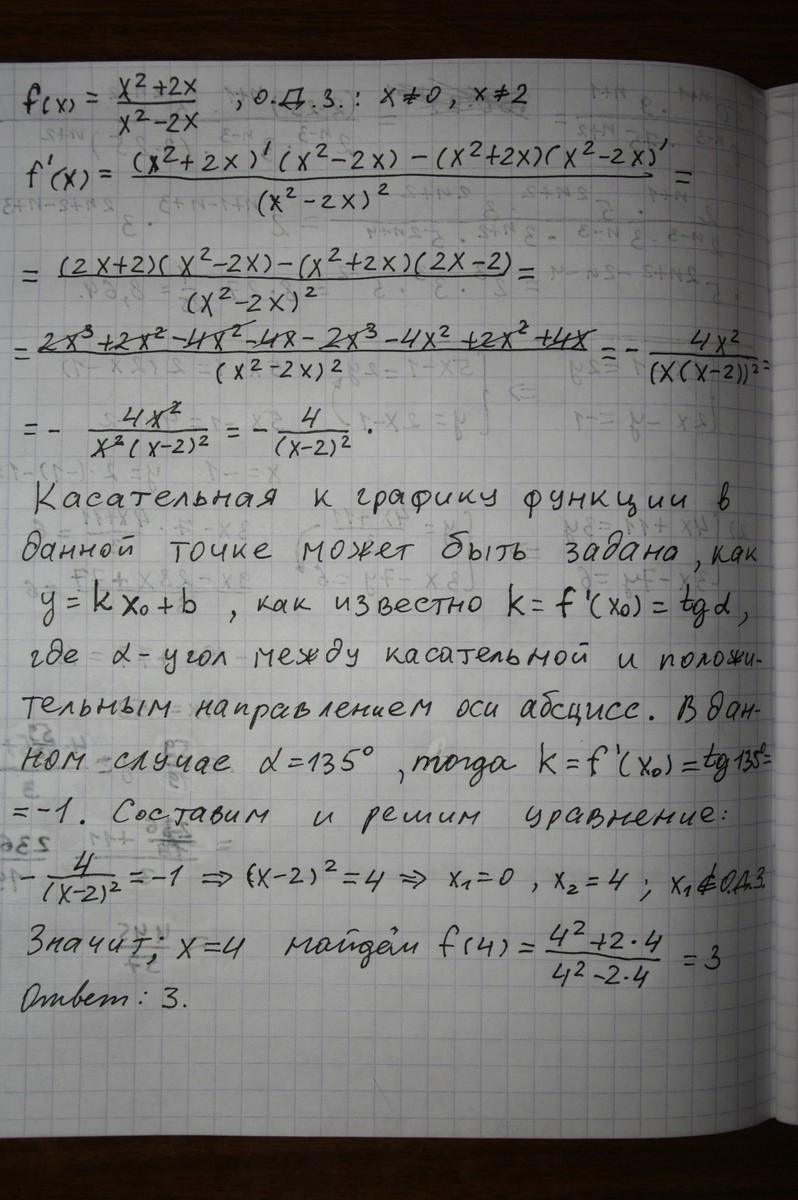 f(x) = (x²+2x)/(x²-2x) , О.Д.З.: x≠0, x≠2
f'(x) = ((x²+2x)'(x²-2x) - (x²+2x)(x²-2x)')/(x²-2x)² =
= ((2x+2)(x²-2x) - (x²+2x)(2x-2))/(x²-2x)² =
= (2x³+2x²-4x²-4x-2x³-4x²+2x²+4x)/(x²-2x)² = - 4x²/(x(x-2))² =
= - 4x²/(x²(x-2)²) = - 4/(x-2)² .
Касательная к графику функции в
данной точке может быть задана, как
y = kx₀+b , как известно k = f'(x₀) = tgα,
где α - угол между касательной и положи-
тельным направлением оси абсцисс. В дан-
ном случае α=135° , тогда k = f'(x₀) = tg135°=
= -1. Составим и решим уравнение:
- 4/(x-2)² = -1 ⇒ (x-2)² = 4 ⇒ x₁=0 , x₂=4 ; x₁∉О.Д.З.
Значит; x=4 найдём f(4) = (4²+2·4)/(4²-2·4) = 3
Ответ: 3.